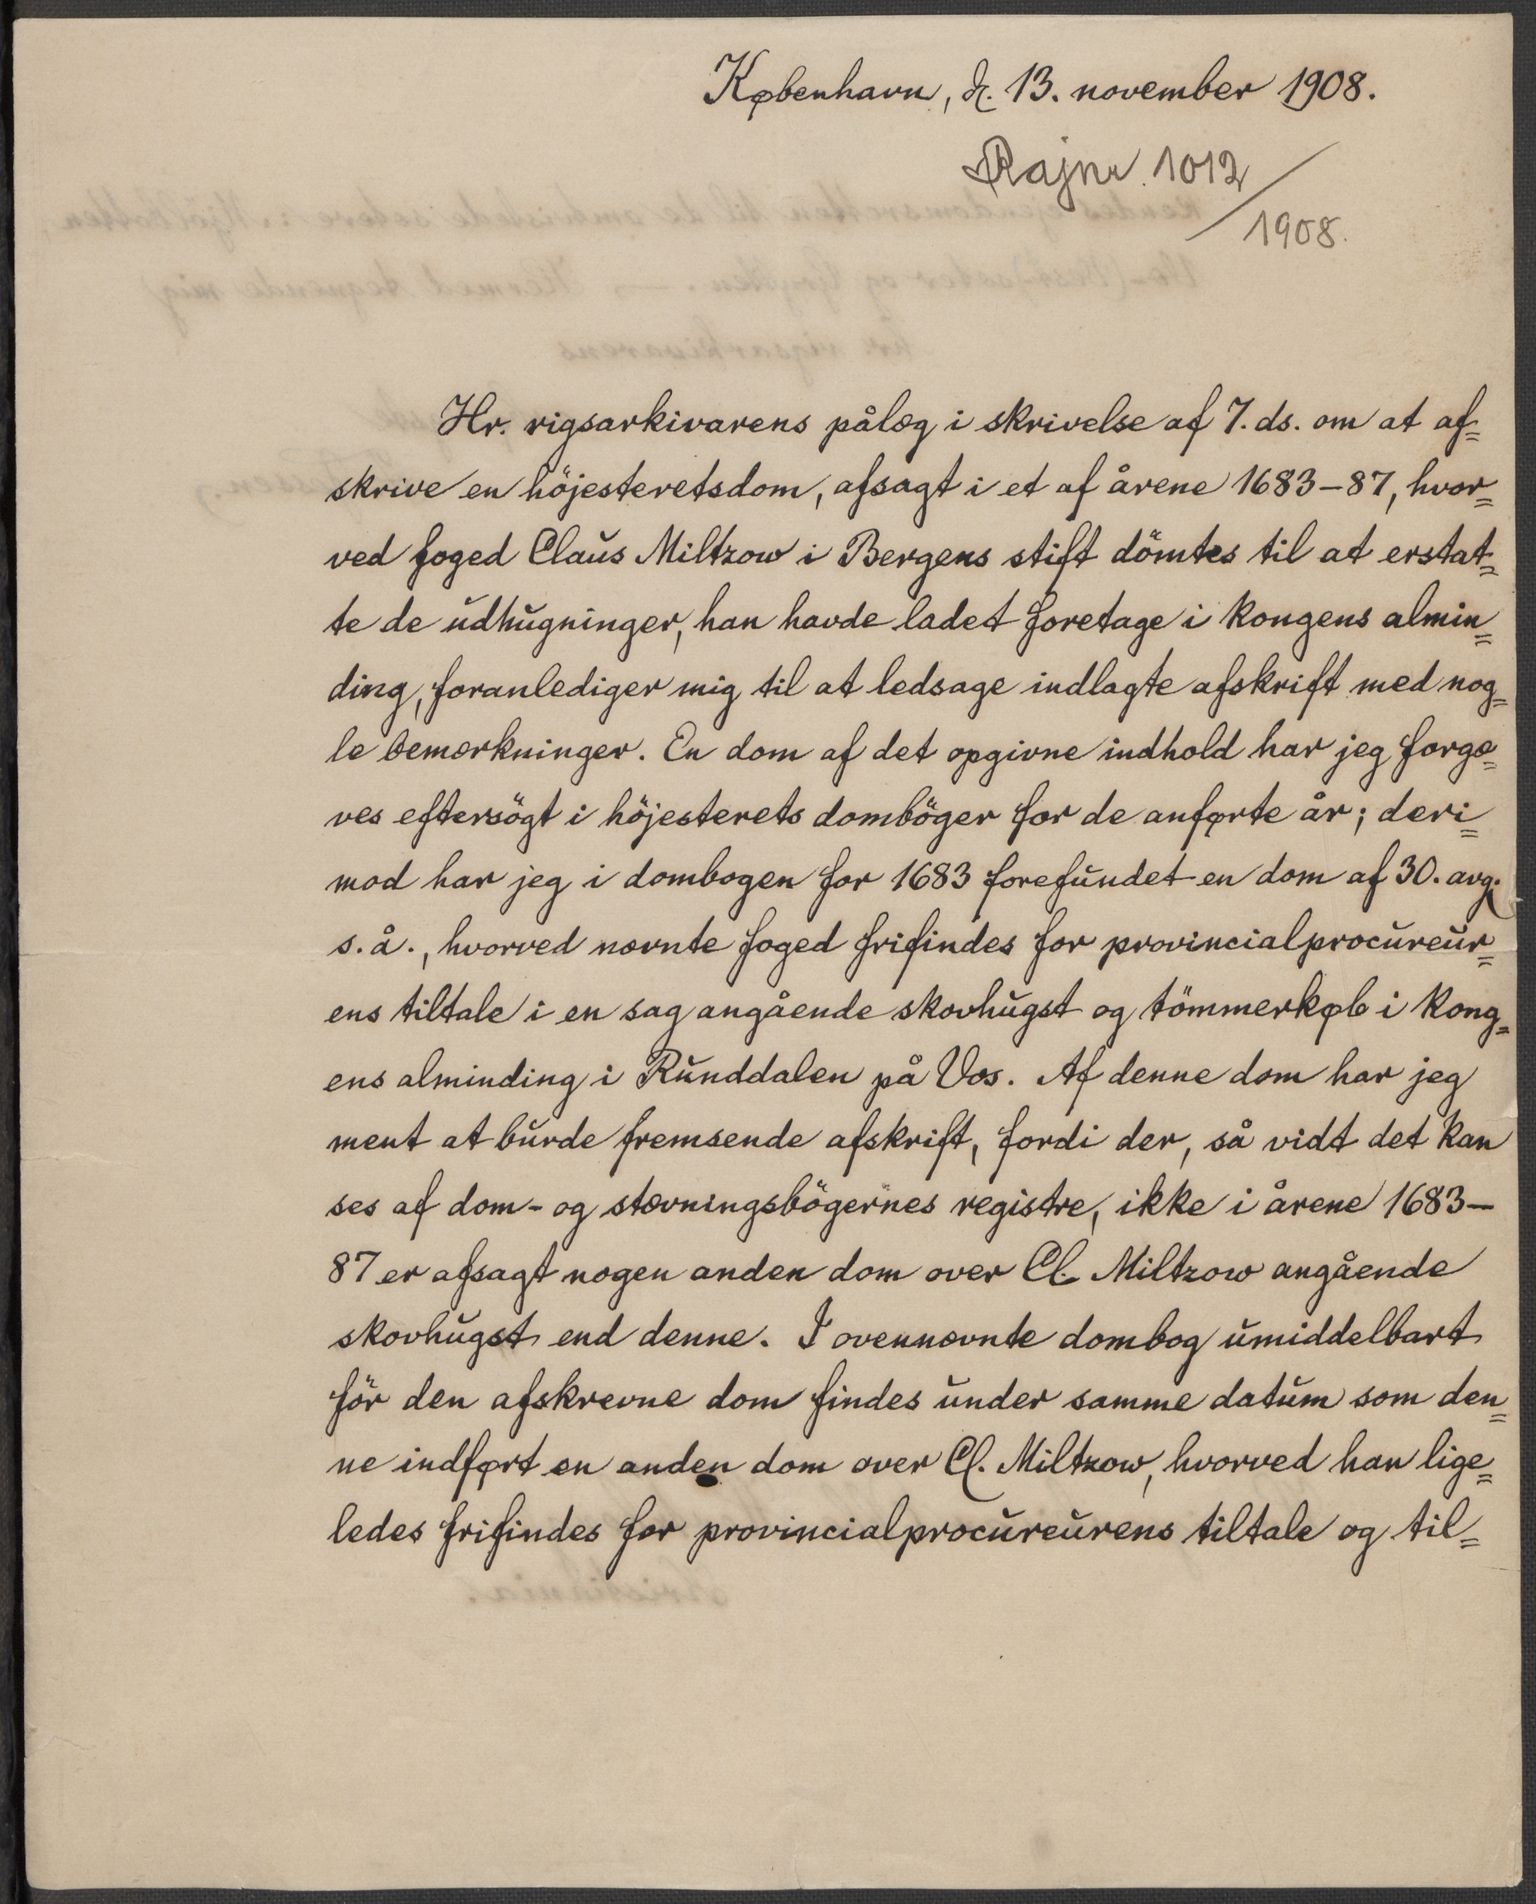 København, d. 13. november 1908.
Rajnr. 1012
/1908.
Hr. rigsarkivarens pålæg i skrivelse af 7. ds. om at af=
skrive en höjesteretsdom, afsagt i et af årene 1683-87, hvor=
ved foged Claus Miltzow i Bergens stift dömtes til at erstat=
te de udhugninger, han havde ladet foretage i kongens almin=
ding, foranlediger mig til at ledsage indlagte afskrift med nog=
le bemærkninger. En dom af det opgivne indhold har jeg forgæ=
ves eftersögt i höjesterets domböger for de anførte år; deri=
mod har jeg i dombogen for 1683 forefundet en dom af 30. avg.
s. å., hvorved nævnte foged frifindes for provincialprocureur=
ens tiltale i en sag angående skovhugst og tömmerkøb i kong=
ens alminding i Runddalen på Vos. Af denne dom har jeg
ment at burde fremsende afskrift, fordi der, så vidt det kan
ses af dom- og stævningsbögernes registre, ikke i årene 1683-
87 er afsagt nogen anden dom over Cl. Miltzow angående
skovhugst end denne. I ovennævnte dombog umiddelbart
för den afskrevne dom findes under samme datum som den=
ne indført en anden dom over Cl. Miltzow, hvorved han lige=
ledes frifindes for provincialprocureurens tiltale og til=